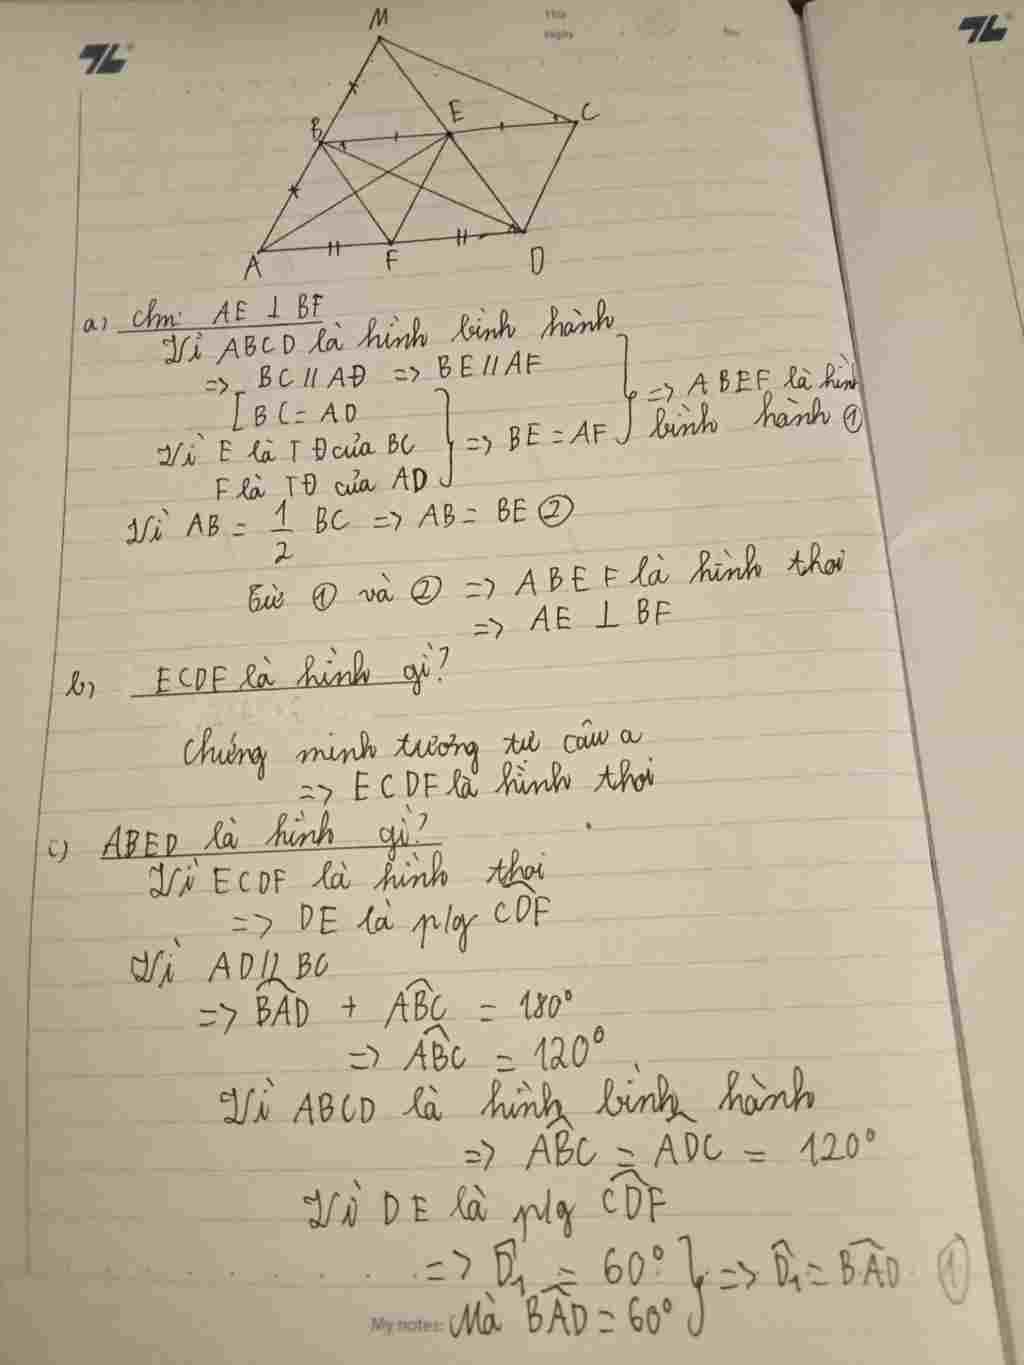 M
B
E
C
A
F
D
a) Chm: AE ⊥ BF
Vì ABCD là hình bình hành
=> BC // AD => BE // AF
BC = AD
=> ABEF là hình bình hành ①
Vì E là TĐ của BC
=> BE = AF
F là TĐ của AD
Vì AB = 1/2 BC => AB = BE ②
Từ ① và ② => ABEF là hình thoi
=> AE ⊥ BF
b) ECDF là hình gì?
Chứng minh tương tự câu a
=> ECDF là hình thoi
c) ABED là hình gì?
Vì ECDF là hình thoi
=> DE là p/g CDF
Vì AD // BC
=> BAD + ABC = 180°
=> ABC = 120°
Vì ABCD là hình bình hành
=> ABC = ADC = 120°
Vì DE là p/g CDF
=> D̂₁ = 60° } => D̂₁ = BAD ①
My notes: Mà BAD = 60°